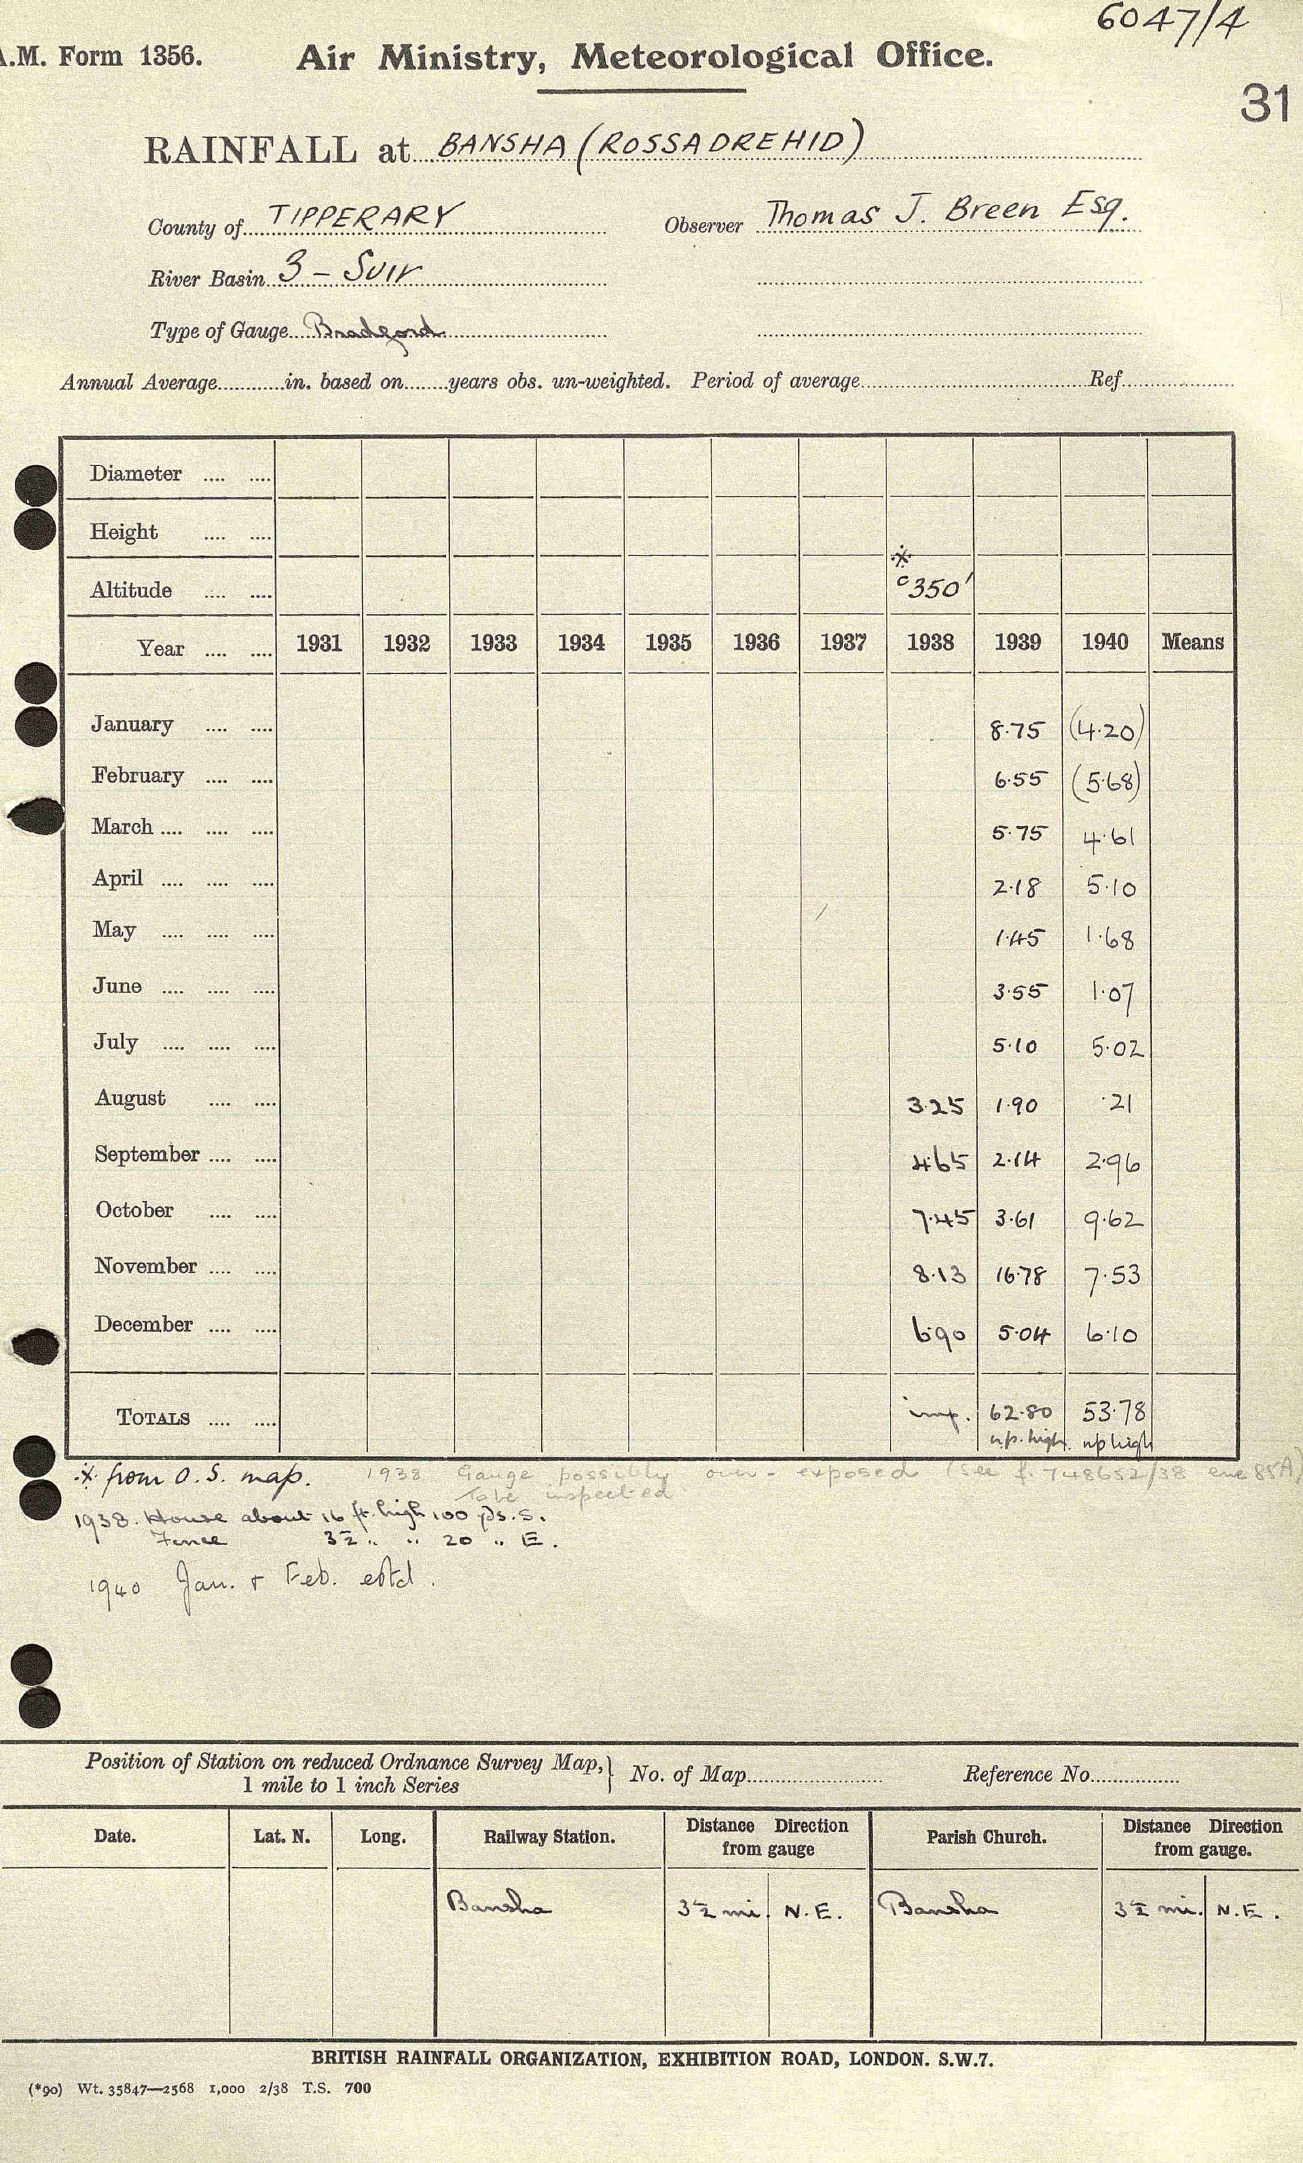 6047/4
A.M. Form 1356. Air Ministry, Meteorological Office.
31
RAINFALL at BANSHA (ROSSADREHID)
County of TIPPERARY Observer Thomas J. Breen Esq.
River Basin 3 – Suir
Type of Gauge Bradford
Annual Average in. based on years obs. un-weighted. Period of average Ref.
Diameter
Height
*
Altitude c350'
Year 1931 1932 1933 1934 1935 1936 1937 1938 1939 1940 Means
January 8.75 (4.20)
February 6.55 (5.68)
March 5.75 4.61
April 2.18 5.10
May 1.45 1.68
June 3.55 1.07
July 5.10 5.02
August 3.25 1.90 .21
September 4.65 2.14 2.96
October 7.45 3.61 9.62
November 8.13 16.78 7.53
December 6.90 5.04 6.10
TOTALS imp. 62.80 53.78
up. high. up high
* from O.S. map. 1938 Gauge possibly over-exposed (see f. 748652/38 enc 85A)
To be inspected
1938. House about 16 ft. high 100 yds. S.
Fence 3½ " " 20 " E.
1940 Jan. & Feb. estd.
Position of Station on reduced Ordnance Survey Map, } No. of Map Reference No.
1 mile to 1 inch Series
Date. Lat. N. Long. Railway Station. Distance Direction from gauge Parish Church. Distance Direction from gauge.
Bansha 3½ mi. N.E. Bansha 3½ mi. N.E.
BRITISH RAINFALL ORGANIZATION, EXHIBITION ROAD, LONDON. S.W.7.
(*90) Wt. 35847—2568 1,000 2/38 T.S. 700